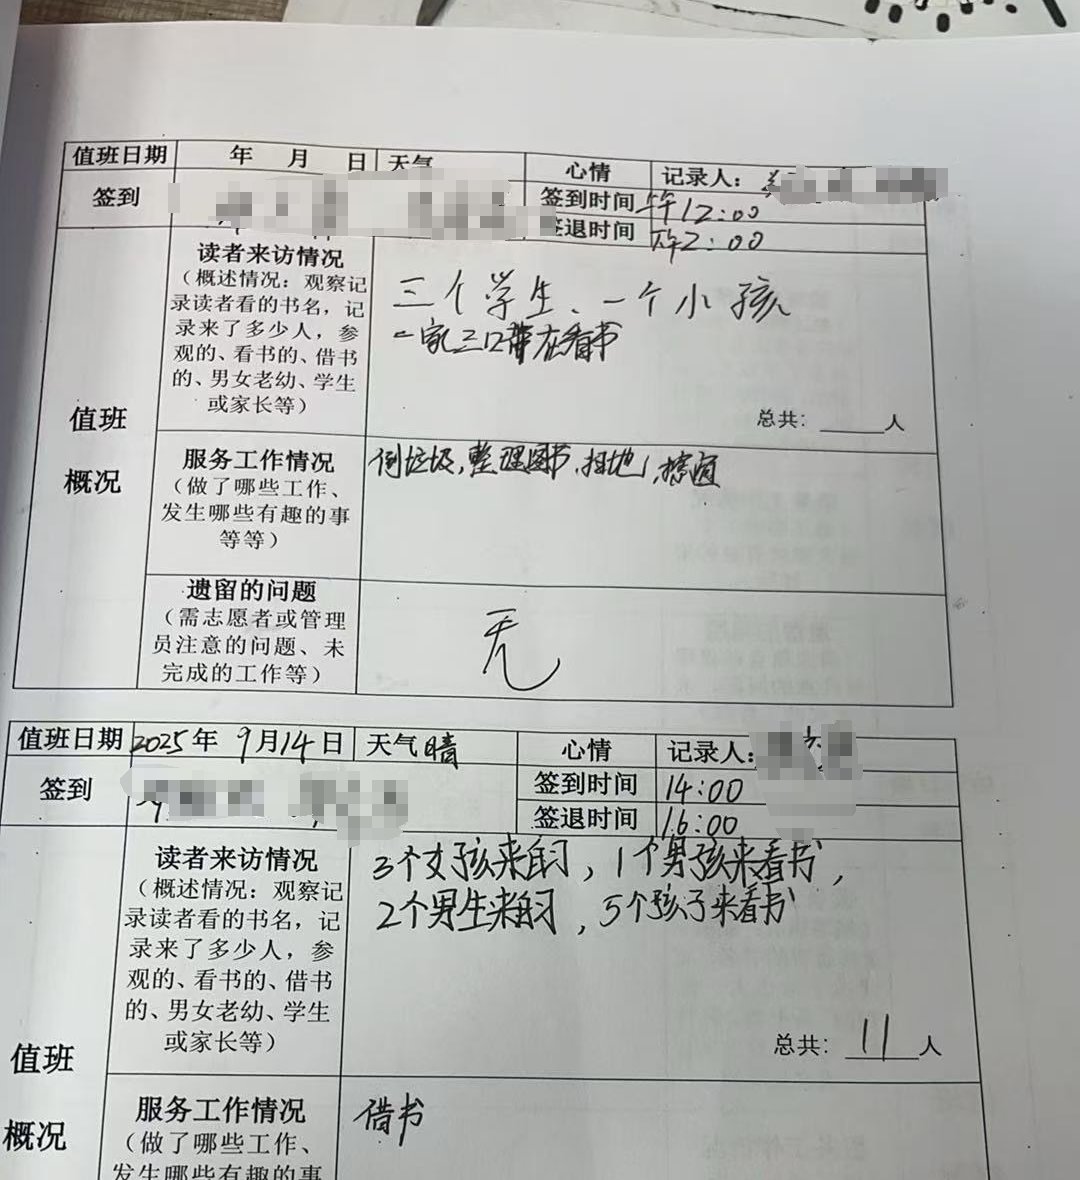 值班日期 年 月 日 天气 心情 记录人：
签到 签到时间 午12:00
签退时间 下午2:00
值班
概况
读者来访情况
（概述情况：观察记
录读者看的书名，记
录来了多少人，参
观的、看书的、借书
的、男女老幼、学生
或家长等）
三个学生、一个小孩
一家三口带在看书
总共：人
服务工作情况
（做了哪些工作、
发生哪些有趣的事
等等）
倒垃圾,整理图书,扫地,擦
遗留的问题
（需志愿者或管理
员注意的问题、未
完成的工作等）
无
值班日期 2025年 9月14日 天气 晴 心情 记录人：
签到 签到时间 14:00
签退时间 16:00
值班
概况
读者来访情况
（概述情况：观察记
录读者看的书名，记
录来了多少人，参
观的、看书的、借书
的、男女老幼、学生
或家长等）
3个女孩来自习，1个男孩来看书，
2个男生来自习，5个孩子来看书
总共：11人
服务工作情况
（做了哪些工作、
发生哪些有趣的事
借书